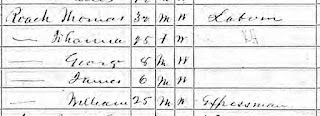 Roach Thomas 32 M W Labor
— Johanna 25 F W
— George 8 M W
— James 6 M W
— William 25 M W Expressman